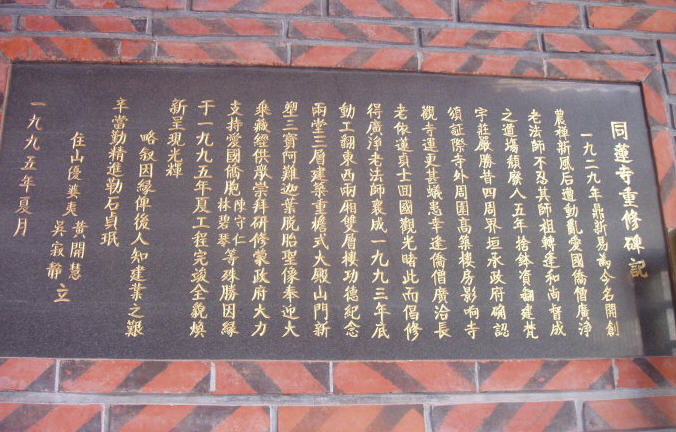 同蓮寺重修碑記
一九二九年鼎新易爲今名開創
農禪新風后遭動亂愛國僑僧廣淨
老法師不忍其師祖轉逢和尚督成
之道場頽廢八五年捨鉢資翻建梵
宇莊嚴勝昔四周界垣承政府確認
頌証際寺外周圍高築樓房影响寺
觀寺運更甚蟻患幸逢僑僧廣洽長
老皈依蓮貞士囬國觀光睹此而倡修
得廣淨老法師襄成一九九三年底
動工翻東西兩廂雙層樓功德紀念
兩堂三層建築重檐式大殿山門新
塑三寶阿難迦葉脱胎聖像奉迎大
乘藏經供衆崇拜研修蒙政府大力
支持愛國僑胞陳守仁林碧琴等殊勝因緣
于一九九五年夏工程完竣全貌煥
新呈現光輝
略叙因緣俾後人知建業之艱
辛當勤精進勒石貞珉
住山優婆夷 黄開慧 吳寂静 立
一九九五年夏月